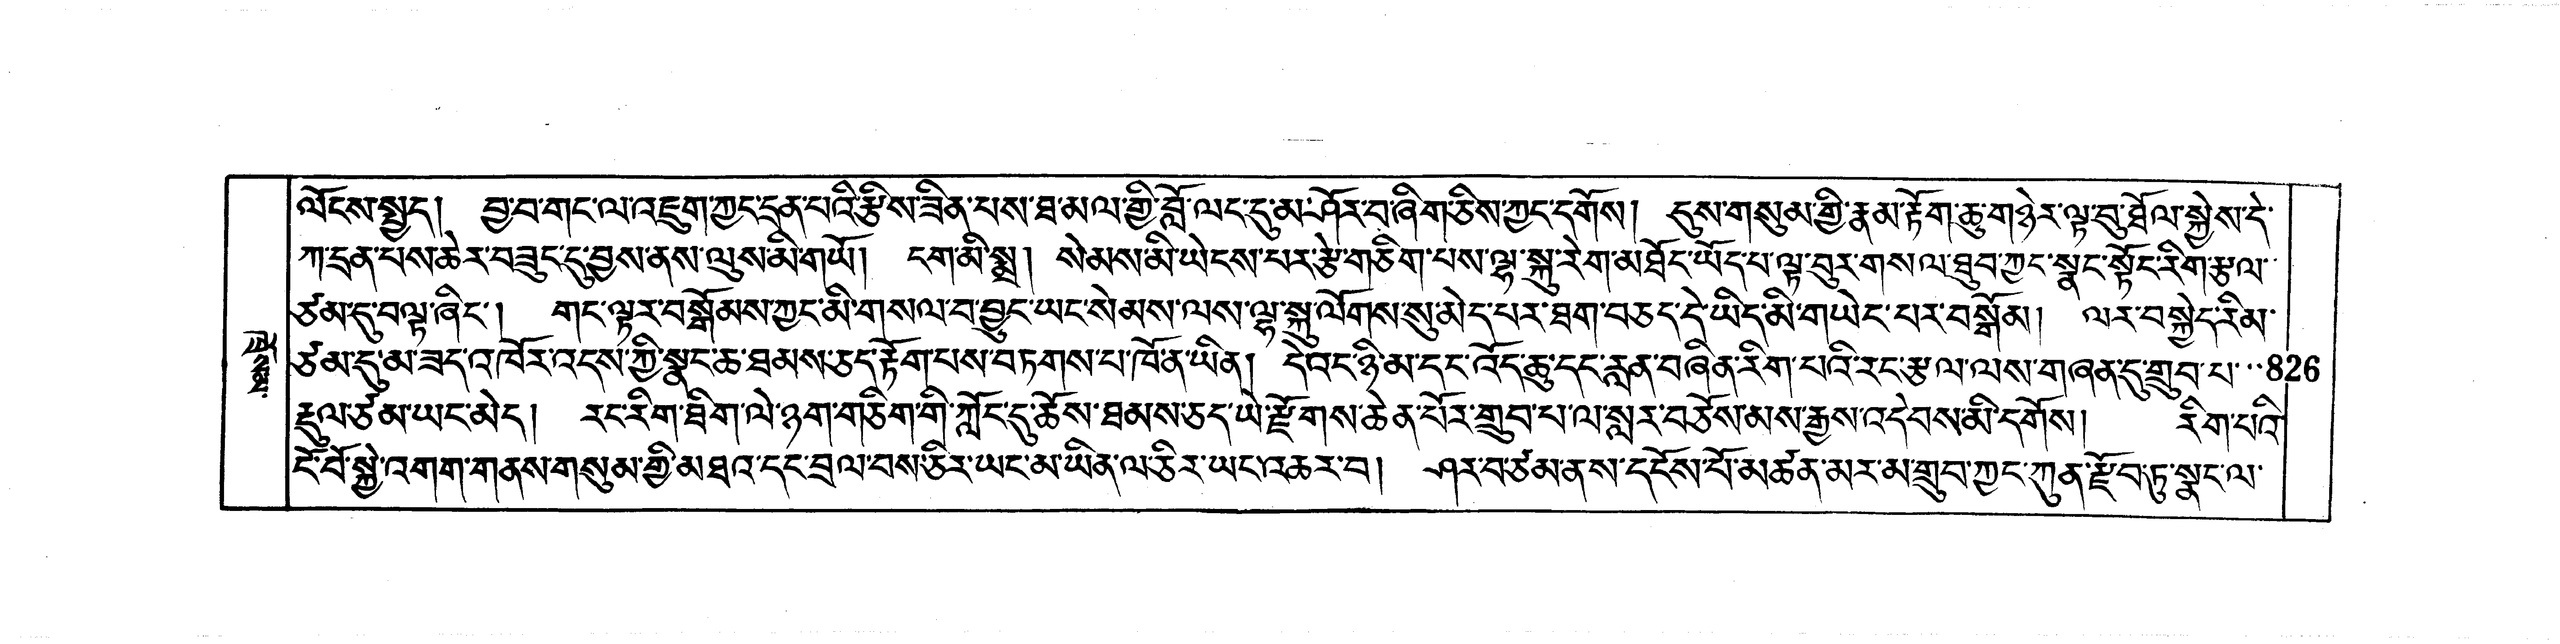 ལོངས་སྤྱད། བྱ་བ་གང་ལ་འཇུག་ཀྱང་དྲན་པའི་རྩིས་ཟིན་པས་ཐ་མལ་གྱི་བློ་ལང་དུ་མ་ཤོར་བ་ཞིག་ཅིས་ཀྱང་དགོས། དུས་གསུམ་གྱི་རྣམ་རྟོག་ཆུ་གཉེར་ལྟ་བུ་ཐོལ་སྐྱེས་དེ་
ཀ་དྲན་པས་ཆེར་བཟུང་དུ་བྱས་ནས་ལུས་མི་གཡོ། ངག་མི་སྨྲ། སེམས་མི་ཡེངས་པར་རྩེ་གཅིག་པས་ལྷ་སྐུ་རེག་མཐོང་ཡོད་པ་ལྟ་བུར་གསལ་ཐུབ་ཀྱང་སྣང་སྟོང་རིག་རྩལ་
ཙམ་དུ་བལྟ་ཞིང་། གང་ལྟར་བསྒོམས་ཀྱང་མི་གསལ་བ་བྱུང་ཡང་སེམས་ལས་ལྷ་སྐུ་ལོགས་སུ་མེད་པར་ཐག་བཅད་དེ་ཡིད་མི་གཡེང་པར་བསྒོམ། ལར་བསྐྱེད་རིམ་
ཙམ་དུ་མ་ཟད་འཁོར་འདས་ཀྱི་སྣང་ཆ་ཐམས་ཅད་རྟོག་པས་བཏགས་པ་ཁོ་ན་ཡིན། དེའང་ཉི་མ་དང་འོད་ཆུ་དང་རླན་བཞིན་རིག་པའི་རང་རྩལ་ལས་གཞན་དུ་གྲུབ་པ་ 826
རྡུལ་ཙམ་ཡང་མེད། རང་རིག་ཐིག་ལེ་ཉག་གཅིག་གི་ཀློང་དུ་ཆོས་ཐམས་ཅད་ཡེ་རྫོགས་ཆེན་པོར་གྲུབ་པ་ལ་སླར་བཅོས་མས་རྒྱས་འདེབས་མི་དགོས། རིག་པའི་
ངོ་བོ་སྐྱེ་འགག་གནས་གསུམ་གྱི་མཐའ་དང་བྲལ་བས་ཅིར་ཡང་མ་ཡིན་ལ་ཅིར་ཡང་འཆར་བ། ཤར་བ་ཙམ་ནས་དངོས་པོ་མཚན་མར་མ་གྲུབ་ཀྱང་ཀུན་རྫོབ་ཏུ་སྣང་ལ་